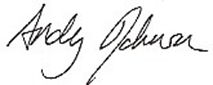 Andy Johnson